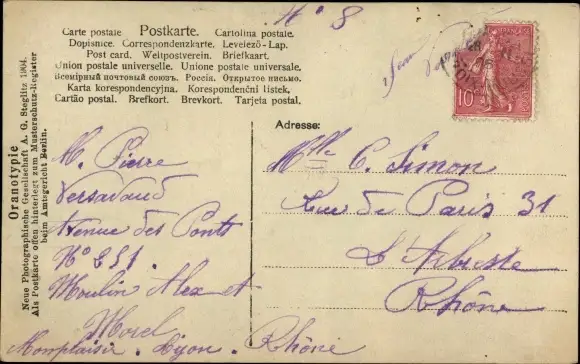 N° 8
Carte postale Postkarte. Cartolina postale.
Dopisnice. Correspondenzkarte. Levelező-Lap.
Post card. Weltpostverein. Briefkaart.
Union postale universelle. Unione postale universale.
Всемірный почтовый союзъ. Россія. Открытое письмо.
Karta korespondencyjna. Korespondenční listek.
Cartão postal. Brefkort. Brevkort. Tarjeta postal.
Oranotypie
Neue Photographische Gesellschaft A. G. Steglitz 1904.
Als Postkarte offen hinterlegt zum Musterschutz-Register
beim Amtsgericht Berlin.
10
Adresse:
M. Pierre
Versavaud
Avenue des Ponts
N° 251.
Moulin Alex et
Morel
Monplaisir. Lyon. Rhône
Mlle C. Simon
Rue de Paris 31
Rhône